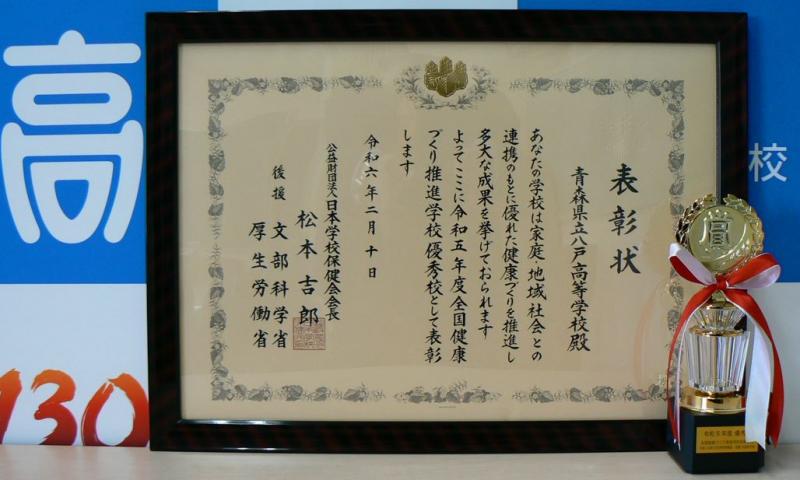 表彰状
青森県立八戸高等学校殿
あなたの学校は家庭・地域社会との
連携のもとに優れた健康づくりを推進し
多大な成果を挙げておられます
よってここに令和五年度全国健康
づくり推進学校優秀校として表彰
します
令和六年二月十日
公益財団法人日本学校保健会会長
松本吉郎
後援 文部科学省
厚生労働省
高
校
130
賞
令和5年度